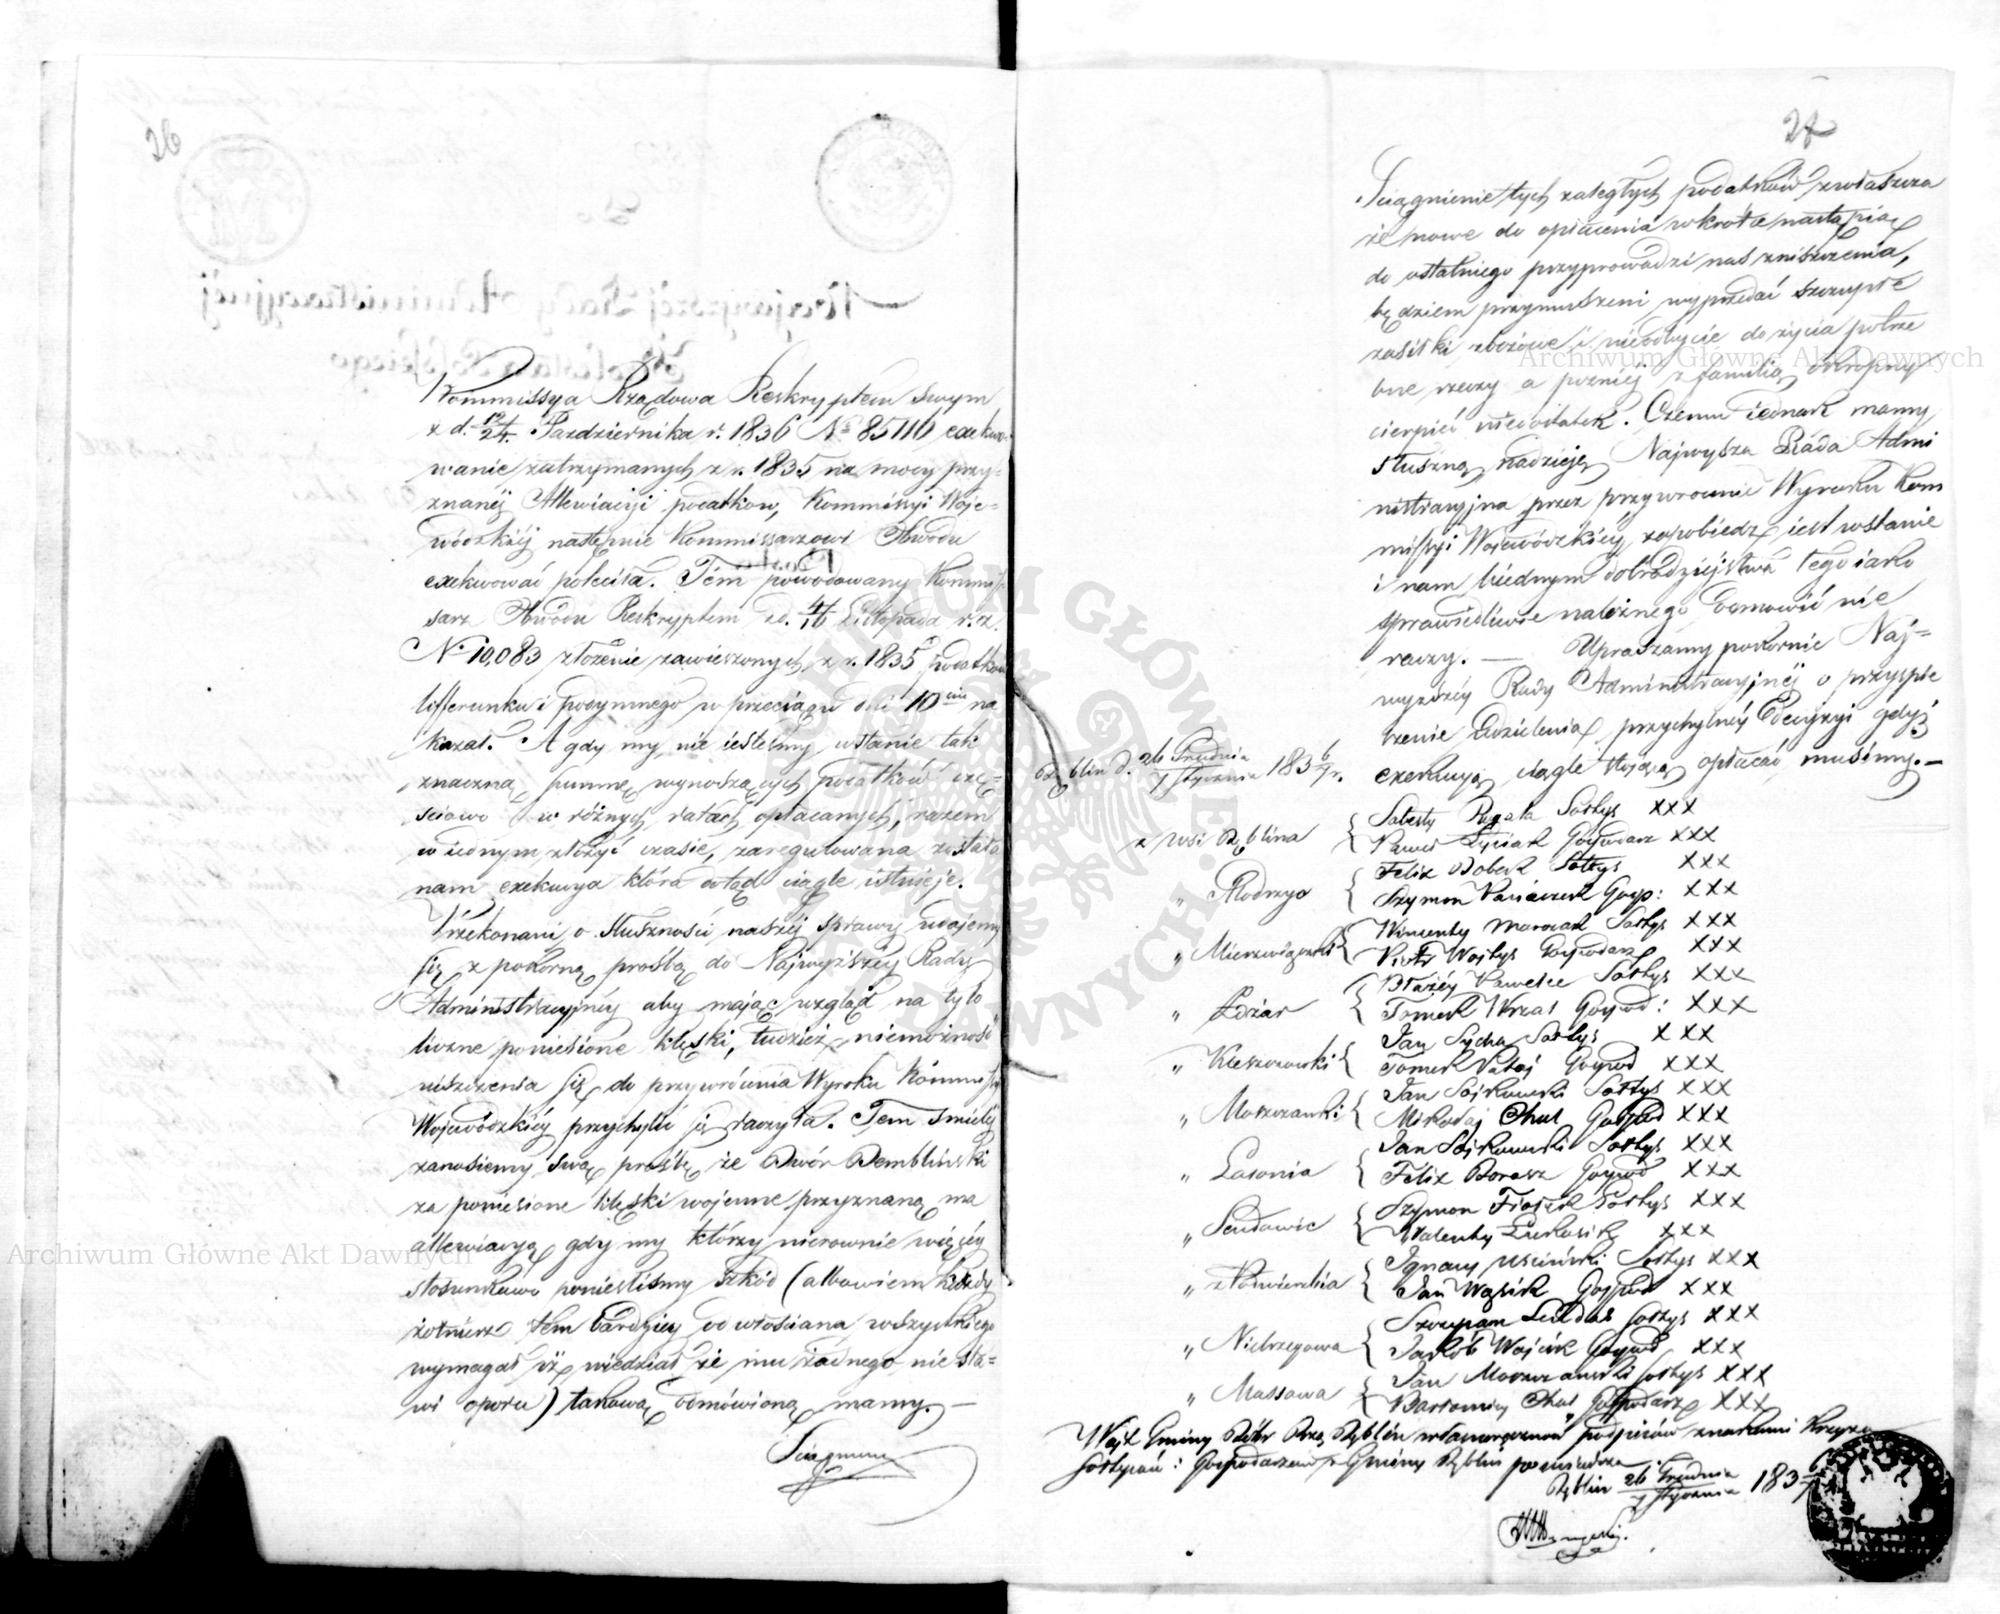 26
Kommissya Rządowa Reskryptem swym
z d. 12/24. Pazdziernika r. 1836 Nº 85116 exekwo-
wanie zatrzymanych z r. 1835 na mocy przy-
znanéj Allewiacyi podatkow, Kommissyi Woje-
wódzkiéj następnie Kommissarzowi Obwodu
exekwować poleciła. Tém powodowany Kommis-
sarz Obwodu Reskryptem z d. 4/16 Listopada r. z.
Nº 10,083 złożenie zawieszonych z r. 1835 podatków
liferunku i podymnego w przeciągu dni 10ciu na
kazał. A gdy my nie iesteśmy wstanie tak
znaczną summę wynoszących podatków czę-
sciowo w różnych ratach opłacanych, razem
w iednym złożyć czasie, zaregulowana została
nam exekucya która dotąd ciągle istnieje.
Przekonani o słuszności naszéj sprawy udajemy
się z pokorną prośbą do Najwyższéy Rady
Administracyjnéy aby mając wzgląd na tylo
liczne poniesione klęski, tudzież niemożność
uiszczenia się do przywrócenia Wyroku Kommissyi
Wojewódzkiéy przychylić się raczyła. Tem smieléj
zanosiemy swą prośbę że Dwór Dembliński
za poniesione klęski wojenne przyznaną ma
allewiacyą gdy my którzy nierownie więcéy
stosunkowo ponieśliśmy szkód (albowiem każdy
żołnierz tem bardziey od włościana wszystkiego
wymagał iż wiedział że mu żadnego nie sta-
wi oporu) takową odmówioną mamy. —
Sciągnienie
Archiwum Główne Akt Dawnych
27
Sciągnienie tych zaległych podatków zwłaszcza
że nowe do opłacenia wkrótce nastąpią
do ostatniego przyprowadzi nas zniszczenia,
będziem przymuszeni wyprzedać szczupłe
zasiłki zbożowe i nieodbycie do życia potrze
bne rzeczy a pozniéj z familią okropny
cierpieć niedostatek. Czemu iednak mamy
słuszną nadzieję Najwyższa Rada Admi
nistracyjna przez przywrocenie Wyroku Kom
missyi Wojewódzkiey zapobiedz iest wstanie
i nam biednym dobrodziejstwa tego iako
sprawiedliwie należnego odmowić nie
raczy. — Upraszamy pokornie Naj-
wyższéy Rady Administracyjnéj o przyspie
szenie udzielenia przychylnéy Decyzyi gdyż
exekucyą ciągle stojącą opłacać musimy. —
Dęblin d. 26 Grudnia/7 Stycznia 1836/7 r.
z wsi Dęblina { Rygała Sołtys XXX
Paweł Gospodarz XXX
„ Modrzyc { Felix Bobek Sołtys XXX
Szymon Gosp: XXX
„ Mierzwiączki { Wincenty Marczak Sołtys XXX
Piotr Wojtys Gospodarz XXX
„ Zdżar { Błażéy Pawelec Sołtys XXX
Tomek Wrzas Gospod: XXX
„ Kleszczowski { Jan Sycha Sołtys XXX
Tomek Gospod XXX
„ Moszczanki { Jan Sójkowski Sołtys XXX
Mikołaj Chut Gospod XXX
„ Lasonia { Jan Sójkowski Sołtys XXX
Félix Borasz Gospod XXX
„ Sendowic { Szymon Fiołek Sołtys XXX
Walenty Łukasik XXX
„ { Ignacy Usciński Sołtys XXX
Jan Wąsik Gospod XXX
„ Niebrzegowa { Szczepan Sołtys XXX
Jakób Wójcik Gospod XXX
„ Massowa { Jan Moszczanski Sołtys XXX
Bartłomiey Chut Gospodarz XXX
Wójt Gminy Dóbr Dęblin własnoręczność podpisów znakami Krzyża
Sołtysów i Gospodarzów z Gminy Dęblin poswiadcza.
Dęblin 26 Grudnia/7 Stycznia 1836/7
Archiwum Główne Akt Dawnych
ARCHIWUM GŁÓWNE AKT DAWNYCH